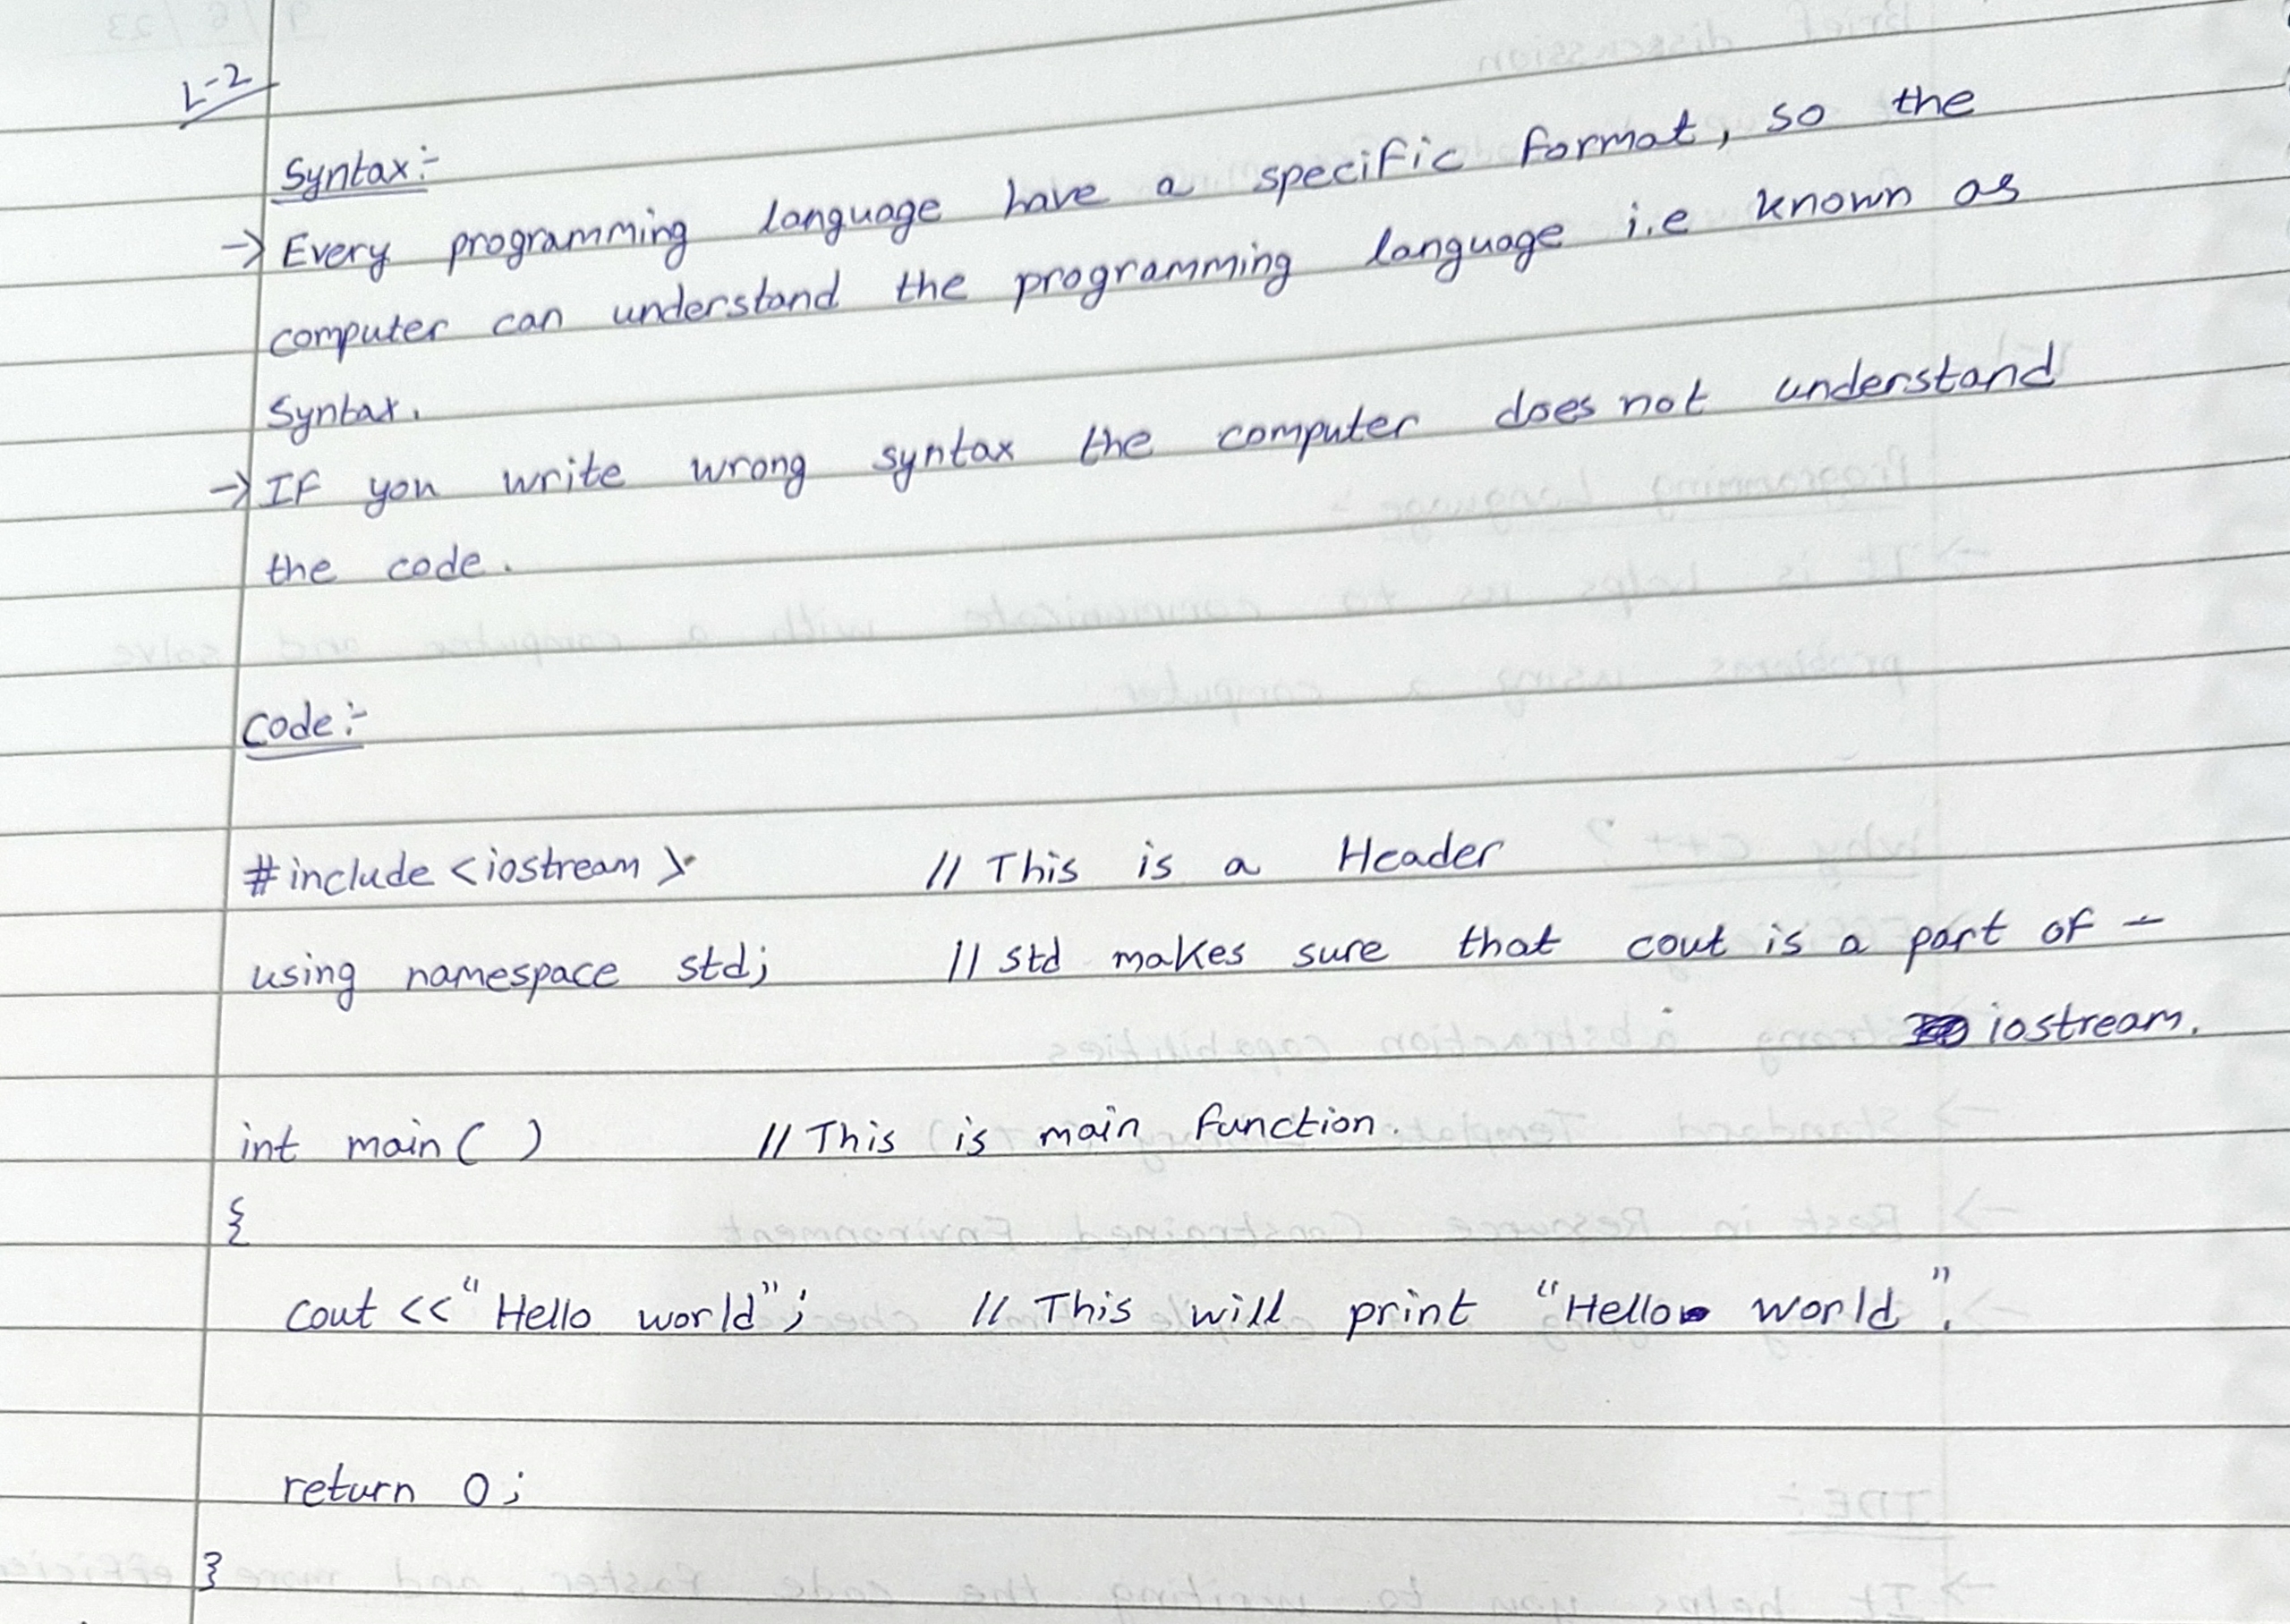 L-2
Syntax:-
→ Every programming language have a specific format, so the
computer can understand the programming language i.e known as
Syntax.
→ If you write wrong syntax the computer does not understand
the code.
Code:-
#include <iostream> // This is a Header
using namespace std; // std makes sure that cout is a part of -
iostream.
int main( ) // This is main function.
{
cout <<"Hello world"; // This will print "Hello world".
return 0;
}